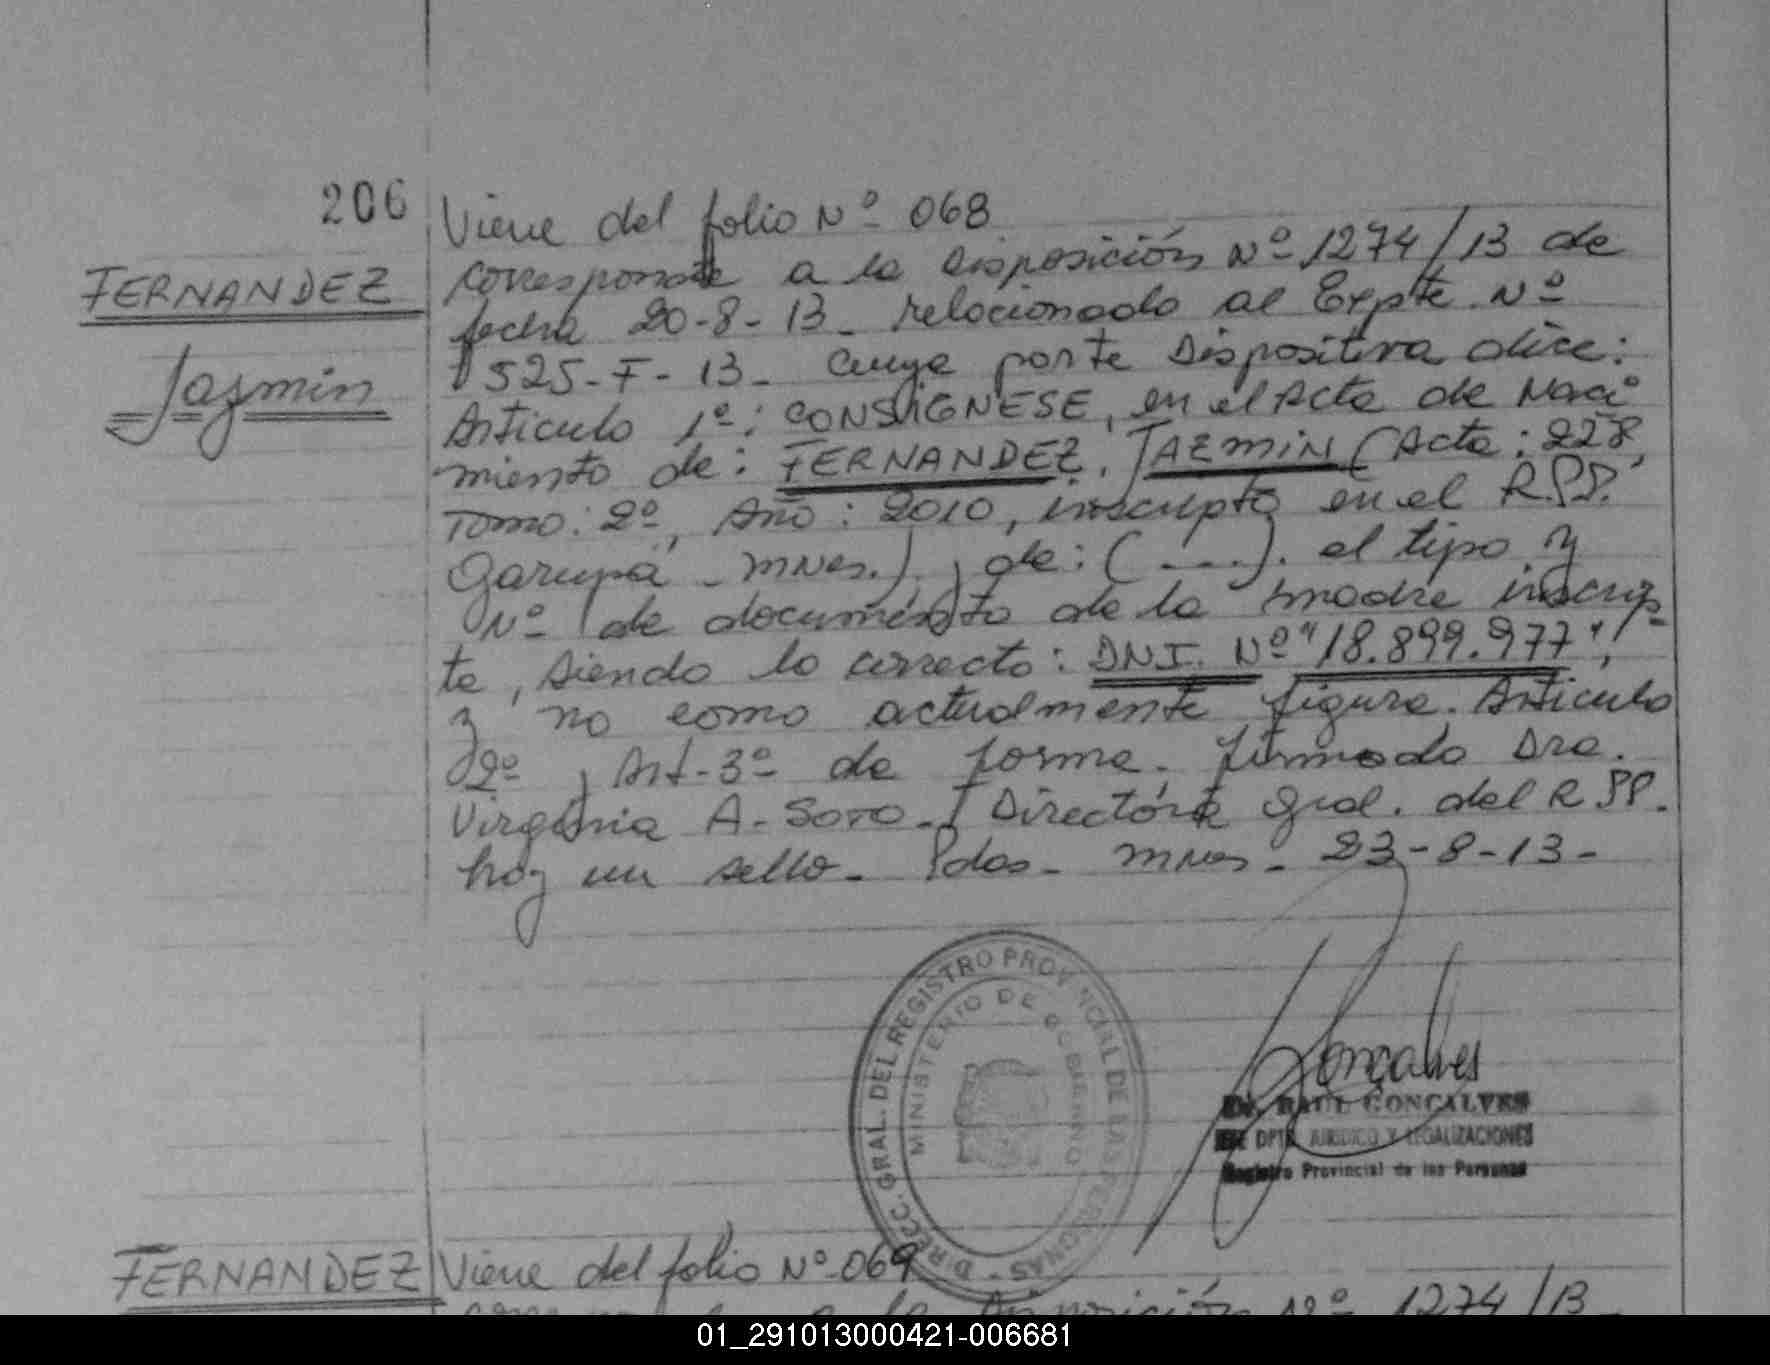 206
Viene del folio Nº 068
FERNANDEZ
Jazmin
corresponde a la Disposición Nº 1274/13 de
fecha 20-8-13- relacionado al Expte. Nº
525-F-13- Cuya parte Dispositiva dice:
Articulo 1º: CONSIGNESE, en el Acta de Naci
miento de: FERNANDEZ, JAZMIN (Acta: 228,
Tomo: 2º, Año: 2010, inscripto en el R.P.P.
Garupá - Mnes.), de: (---). el tipo y
Nº de documento de la madre inscrip-
ta, siendo lo correcto: DNI. Nº "18.899.977",
y no como actualmente figura. Articulo
2º, Art-3º de forma. firmado Dra.
Virginia A. Soto - Directora Gral. del R.P.P.
hay un sello. Pdas. Mnes. 23-8-13-
DIRECC. GRAL. DEL REGISTRO PROVINCIAL DE LAS PERSONAS
MINISTERIO DE GOBIERNO
Gonçalves
Dr. RAUL GONÇALVES
DPTO. JURIDICO Y LEGALIZACIONES
Registro Provincial de las Personas
FERNANDEZ
Viene del folio Nº 069
a la Disposición Nº 1274/13
01_291013000421-006681